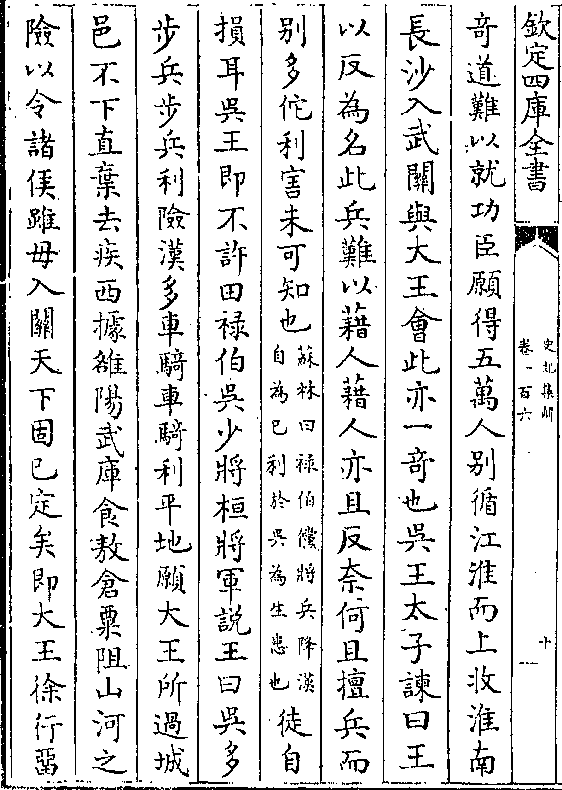 欽定四庫全書
史記集解
卷一百六
十一
奇道難以就功臣願得五萬人别循江淮而上收淮南
長沙入武關與大王會此亦一奇也吳王太子諫曰王
以反為名此兵難以藉人藉人亦且反奈何且擅兵而
别多佗利害未可知也蘇林曰禄伯儻將兵降漢自為已利於吳為生患也徒自
損耳吳王即不許田禄伯吳少將桓將軍説王曰吳多
步兵步兵利險漢多車騎車騎利平地願大王所過城
邑不下直棄去疾西據雒陽武庫食敖倉粟阻山河之
險以令諸侯雖毋入關天下固已定矣即大王徐行留